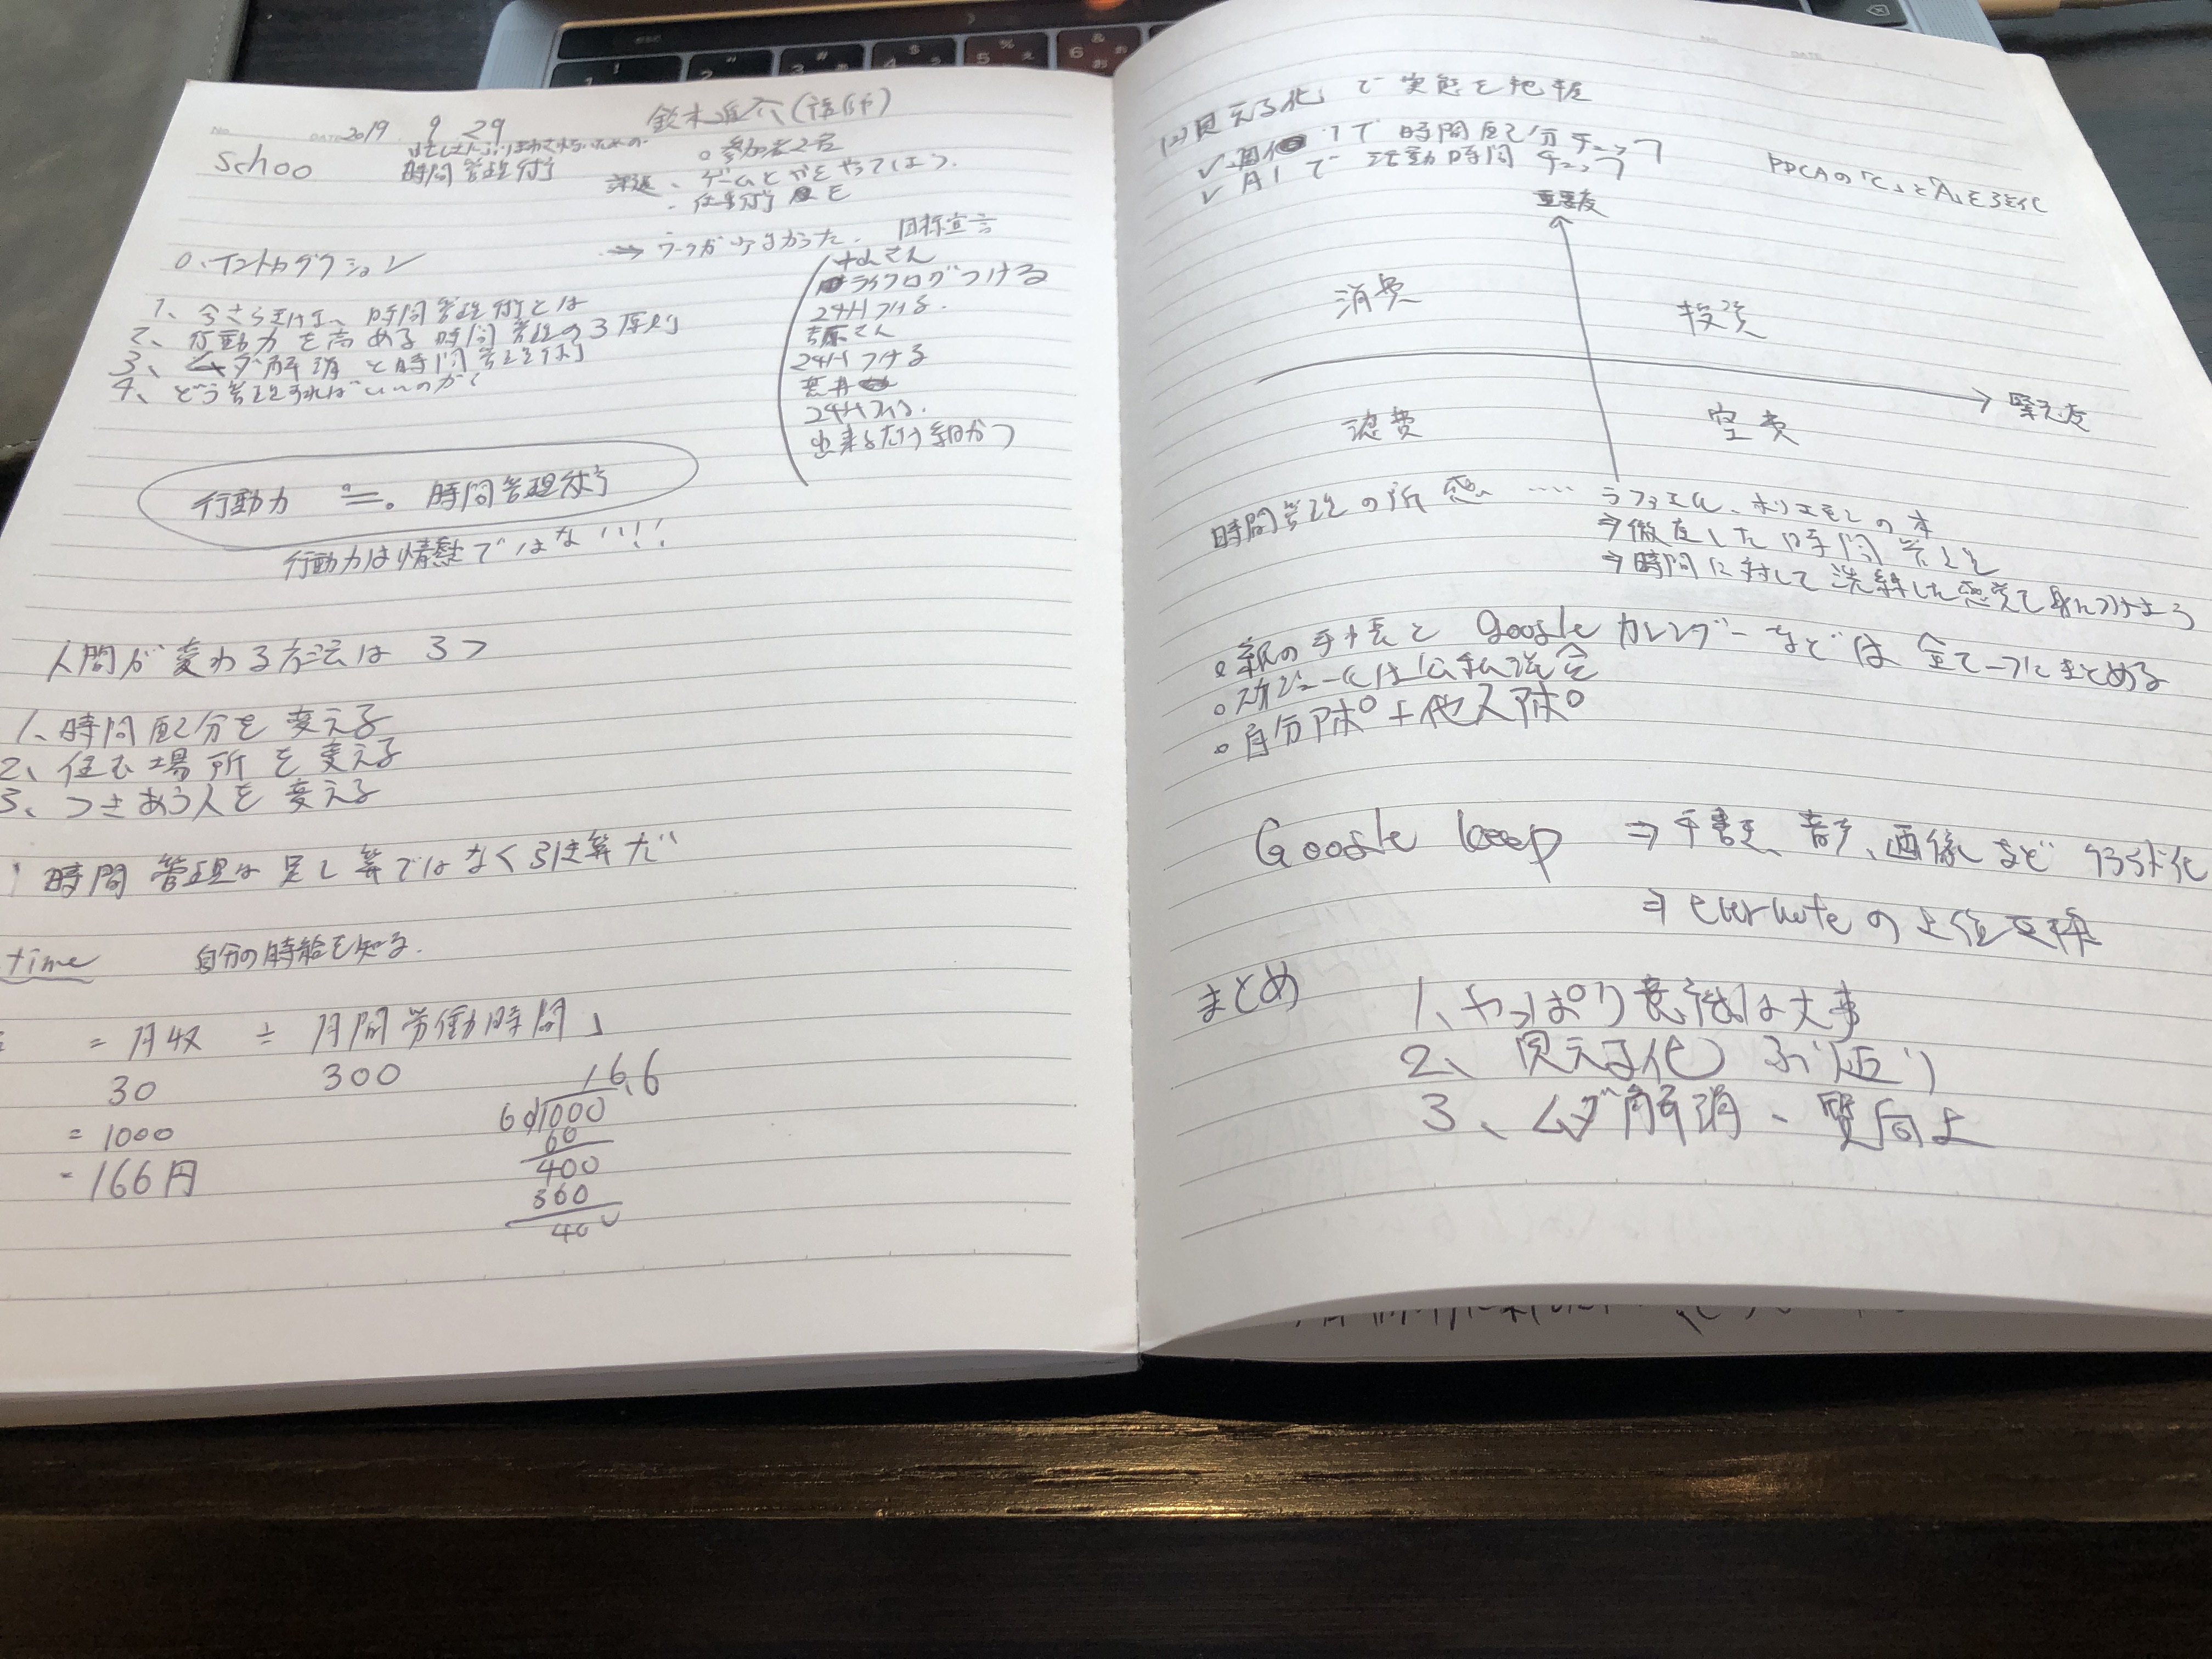 2019 9 29
鈴木進介(講師)
schoo
時間管理術
○参加者2名
・ゲームとかをやってしまう.
0、イントロダクション
⇒ワークが少なかった.
目標宣言
1、今さら聞けない、時間管理術とは
2、行動力を高める時間管理の3原則
3、ムダ解消と時間管理術
4、どう管理すればいいのか?
さん
ライフログつける
24Hつける.
さん
24Hつける
24Hつける.
出来るだけ細かつ
行動力 ≒。 時間管理術
行動力は情熱ではない!!
人間が変わる方法は 3つ
1、時間配分を変える
2、住む場所を変える
3、つきあう人を変える
時間管理は足し算ではなく引き算だ
time 自分の時給を知る.
= 月収 ÷ 月間労働時間」
30 300
= 1000
= 166円
16.6
60 1000
60
400
360
400
(2)「見える化」で実態を把握
✓ 週1で時間配分チェック
✓ A1で活動時間チェック
PDCAの「C」と「A」を強化
重要度
消費 投資
緊急度
浪費 空費
時間管理の所感 ‥‥ ラファエル、ホリエモンの本
⇒徹底した時間管理
⇒時間に対して洗練した感覚を身につけよう
○紙の手帳とGoogleカレンダーなどは全て一つにまとめる
○スケジュールは公私混合
○自分アポ+他人アポ
Google keep ⇒手書き、音声、画像などクラウド化
⇒evernoteの上位互換
まとめ
1、やっぱり意識は大事
2、見える化 ふり返り
3、ムダ解消、質向上